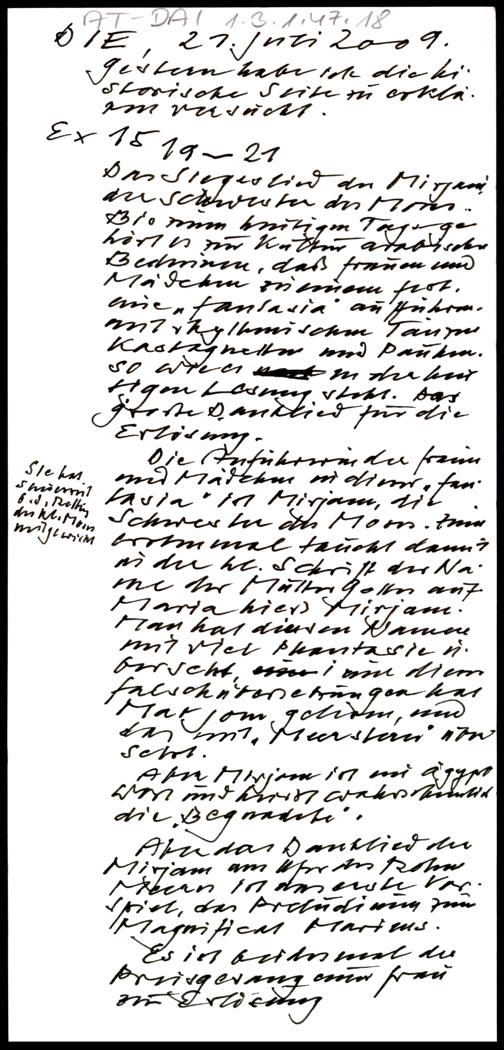 AT-DAI 1.3.1.47.18
DIE, 21. Juli 2009.
Gestern habe ich die hi-
storische Seite zu erklä-
ren versucht.
Ex 15 19–21
Das Siegeslied der Mirjam
der Schwester des Moses.
Bis zum heutigen Tage ge-
hört es zur Kultur arabischer
Beduinen, daß Frauen und
Mädchen zu einem Fest
eine „Fantasia" aufführen
mit rhythmischem Tanze
Kastagnetten und Pauken.
so wie es in der heu-
tigen Lesung steht. Das
große Danklied für die
Erlösung.
Die Anführerin der Frauen
und Mädchen in dieser „Fan-
tasia" ist Mirjam, die
Schwester des Moses. Zum
erstenmal taucht damit
in der hl. Schrift der Na-
me der Mutter Gottes auf
Maria hiess Mirjam.
Man hat diesen Namen
mit viel Phantasie ü-
bersetzt, eine dieser
falschen Übersetzungen hat
Mar Jam gelesen, und
das mit „Meerstern" über-
setzt.
Aber Mirjam ist ein ägypt.
Wort und heisst wahrscheinlich
die „Begnadete".
Aber das Danklied der
Mirjam am Ufer des Roten
Meeres ist das erste Vor-
spiel, das Preludium zum
Magnificat Mariens.
Es ist beidesmal der
Preisgesang einer Frau
zur Erlösung
Sie hat
seinerzeit
b.d. Rettg
des kl. Moses
mitgewirkt